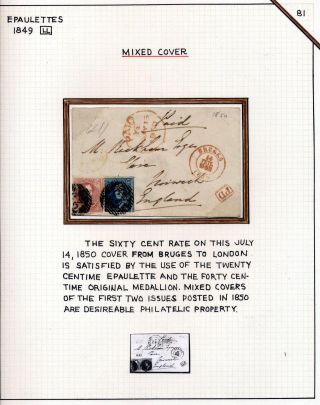 EPAULETTES
1849 LL
B1
MIXED COVER
1850
Paid
PAID
BRUGES
M. Kirkham Esqr
Norwich
England
THE SIXTY CENT RATE ON THIS JULY
14, 1850 COVER FROM BRUGES TO LONDON
IS SATISFIED BY THE USE OF THE TWENTY
CENTIME EPAULETTE AND THE FORTY CEN-
TIME ORIGINAL MEDALLION. MIXED COVERS
OF THE FIRST TWO ISSUES POSTED IN 1850
ARE DESIREABLE PHILATELIC PROPERTY.